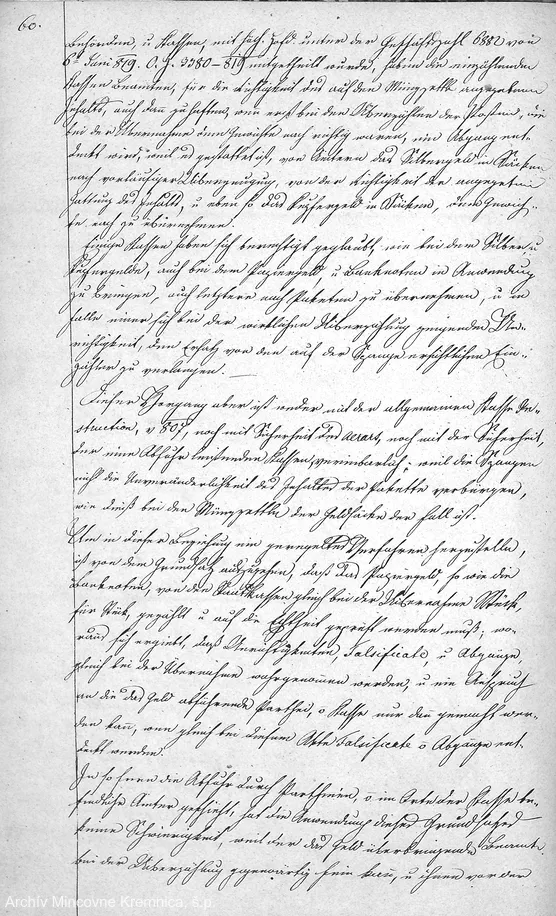 60.
Behörden, u Kassen, mit hoh. Hofd. unter der Geschäftszahl 6882 von
6t Juni 819. O. Z. 3380-819 mitgetheilt wurde, haben die einzählenden
Kassen Beamten, für die Richtigkeit des auf den Münzzettln angegebenen
Gehalts, auch dan zu haften, wen erst bei den Überzählen der Posten, die
bei der Übernahme dem Gewichte nach richtig waren, ein Abgang ent-
deckt wird; weil es gestattet ist, von Ämtern das Silbergeld in Säcken
nach vorläufiger Überzeugung, von der Richtigkeit der angegebenen
Gattung des Gehalts, u eben so das Kupfergeld in Säcken, dem Gewich-
te nach zu übernehmen.
Einige Kassen haben sich berechtigt geglaubt, wie bei dem Silber u
Kupfergelde, auch bei dem Papiergeld, u Banknoten in Anwendung
zu bringen, auch letztere nach Paketen zu übernehmen, u im
Falle einer sich bei der wirklichen Überzählung zeigenden Un-
richtigkeit, den Ersatz von den auf der Spange ersichtlichen Ein-
zähler zu verlangen.
Dieser Vorgang aber ist weder mit der allgemeinen Kasse In-
struction, v 807, noch mit Sicherheit des aerars, noch mit der Sicherheit,
der eine Abfuhr leistenden Kassen, vereinbarlich; weil die Spangen
nicht die Unveränderlichkeit des Gehaltes der Pakette verbürgen,
wie dieß bei den Münzzettln der Geldsäcke der Fall ist.
Um in dieser Beziehung ein geregeltes Verfahren herzustellen,
ist von dem Grundsatz auszugehen, daß das Papiergeld, so wie die
Banknoten, von den Staatskassen gleich bei der Übernahme Stück
für Stück, gezählt u auf die Echtheit geprüft werden muß; wo-
raus sich ergiebt, daß Unrichtigkeiten, Falsificate, u Abgänge,
gleich bei der Übernahme wahrgenommen werden, u ein Anspruch
an die das Geld abführende Parthei, o Kasse nur dan gemacht wer-
den kan, wen gleich bei diesem Akte Falsificate o Abgänge ent-
deckt werden.
In so fern die Abfuhr durch Partheien, o im Orte der Kasse be-
findliche Ämter geschieht, hat die Anwendung dieses Grundsatzes
keine Schwierigkeit, weil der das Geld überbringende Beamte
bei der Überzählung gegenwärtig sein kan, u ihnen vor der
Archív Mincovne Kremnica, š.p.